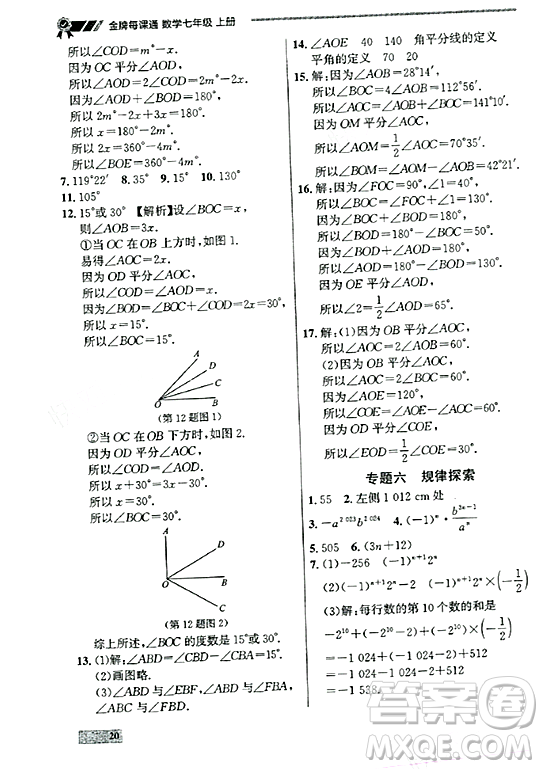 金牌每课通 数学七年级 上册
所以∠COD=m°-x.
因为 OC 平分∠AOD,
所以∠AOD=2m°-2x.
因为∠AOD+∠BOD=180°,
所以 2m°-2x+3x=180°.
所以 x=180°-2m°.
所以∠BOE=360°-4m°.
7.119°22′ 8.35° 9.15° 10.130°
11.105°
12.15°或30° 【解析】设∠BOC=x,
则∠AOB=3x.
①当 OC 在 OB 上方时,如图 1.
易得∠AOC=2x.
因为 OD 平分∠AOC,
所以∠COD=x.
所以∠BOD=2x=30°.
所以 x=15°.
所以∠BOC=15°.
A
D
C
O
B
(第 12 题图 1)
②当 OC 在 OB 下方时,如图 2.
因为 OD 平分∠AOC,
所以∠COD=∠AOD.
所以 x+30°=3x-30°.
所以 x=30°.
所以∠BOC=30°.
A
D
O
B
C
(第 12 题图 2)
综上所述,∠BOC 的度数是 15°或 30°.
13.(1)解:∠ABD=∠CBD=∠ABC.
(2)画图略.
(3)∠ABD=∠CBD+∠ABC.
20
14.∠AOE 40 140 角平分线的定义
平角的定义 70 20
15.解:因为∠AOB=28°14′,
所以∠BOC=4∠AOB=112°56′.
所以∠AOC=∠AOB+∠BOC=141°10′.
因为 OM 平分∠AOC,
所以∠AOM=1/2∠AOC=70°35′.
所以∠BOM=∠AOM-∠AOB=42°21′.
16.解:因为∠FOC=90°,∠1=40°,
所以∠BOC=∠FOC+∠1=130°.
因为∠AOB=180°,
所以∠AOC=180°-∠BOC=50°.
所以∠AOD=180°-∠AOC=130°.
因为 OE 平分∠AOD,
所以∠2=1/2∠AOD=65°.
17.解:(1)因为 OB 平分∠AOC,
所以∠AOC=2∠AOB=60°.
(2)因为 OB 平分∠AOC,
所以∠BOC=∠AOB=30°.
所以∠COE=∠BOE-∠BOC=60°.
因为 OD 平分∠COE,
所以∠EOD=1/2∠COE=30°.
专题六 规律探索
1.55 2.左侧 1 012 cm 处
3.-a²⁰²³b²⁰²⁴ 4.(-1)ⁿ·b³ⁿ⁻¹/aⁿ
5.505 6.(3n+12)
7.(1)-256 (-1)ⁿ⁺¹2ⁿ
(2)(-1)ⁿ2ⁿ (-1)ⁿ⁺¹2ⁿ×(-1/2)
(3)解:每行数的第 10 个数的和是
-2¹⁰+(-2¹⁰)+(-2¹⁰)×(-1/2)
=-1 024-1 024+512
=-1 024+(-1 024+512)
=-1 538.